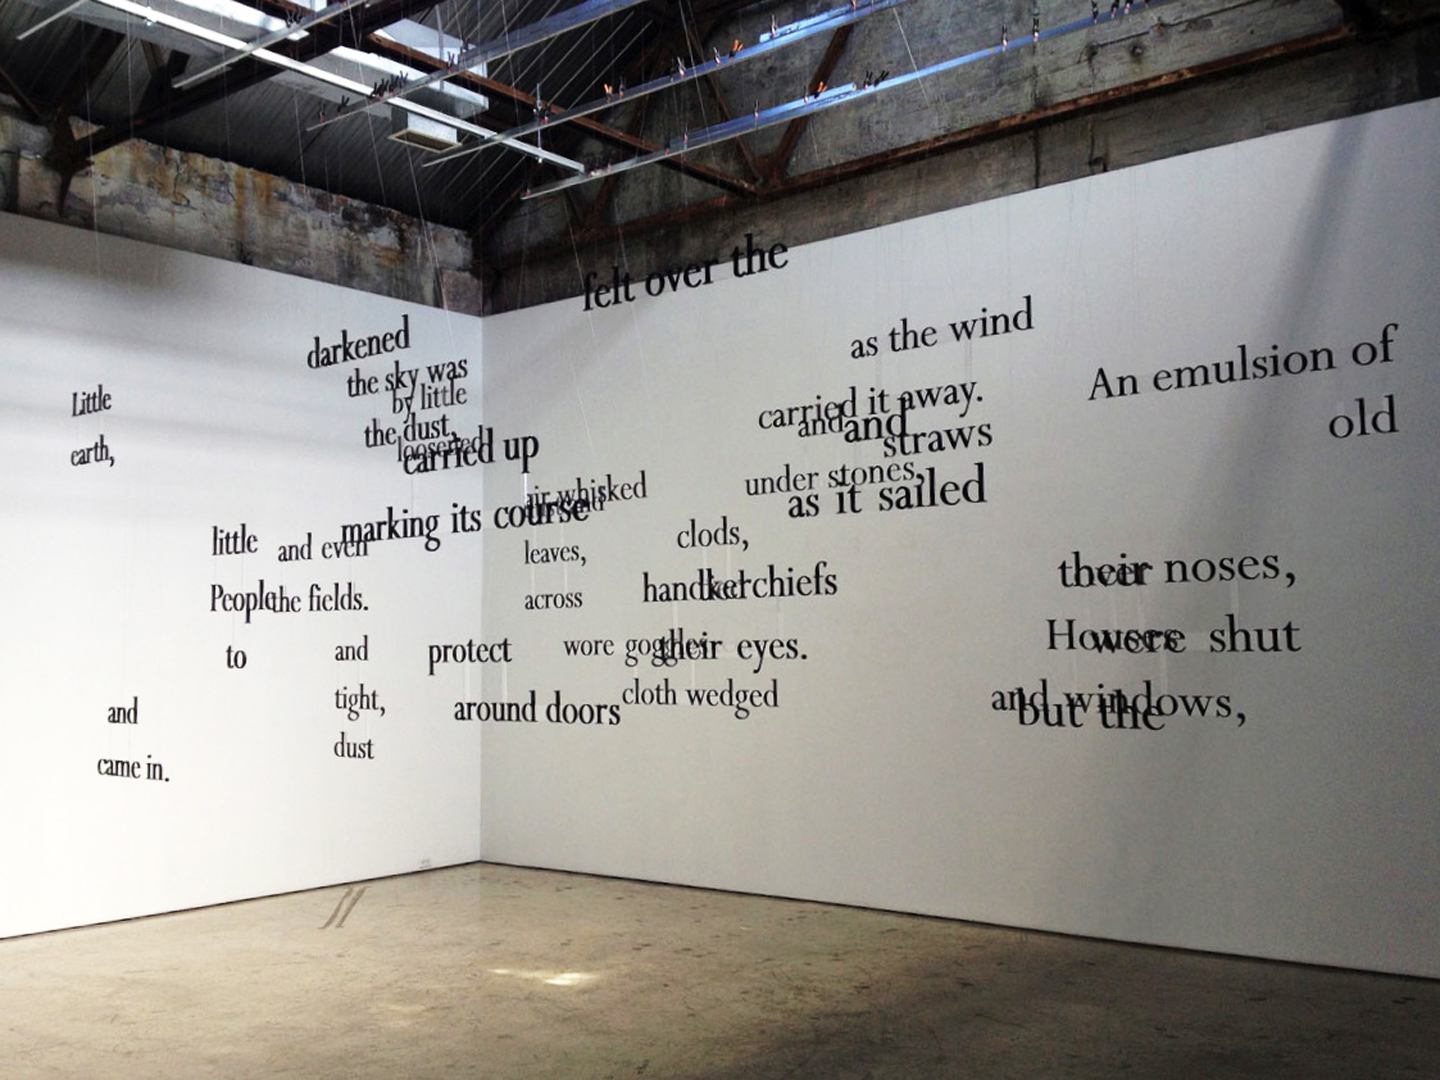 felt over the
darkened
the sky was
by little
Little
the dust,
loosened
carried up
earth,
as the wind
An emulsion of
carried it away.
and and
straws
old
air whisked
under stones,
as it sailed
marking its course
little
and even
leaves,
clods,
People
the fields.
across
handkerchiefs
their noses,
over
to
and
protect
wore goggles
their eyes.
Houses
were shut
tight,
around doors
cloth wedged
and windows,
but the
and
dust
came in.